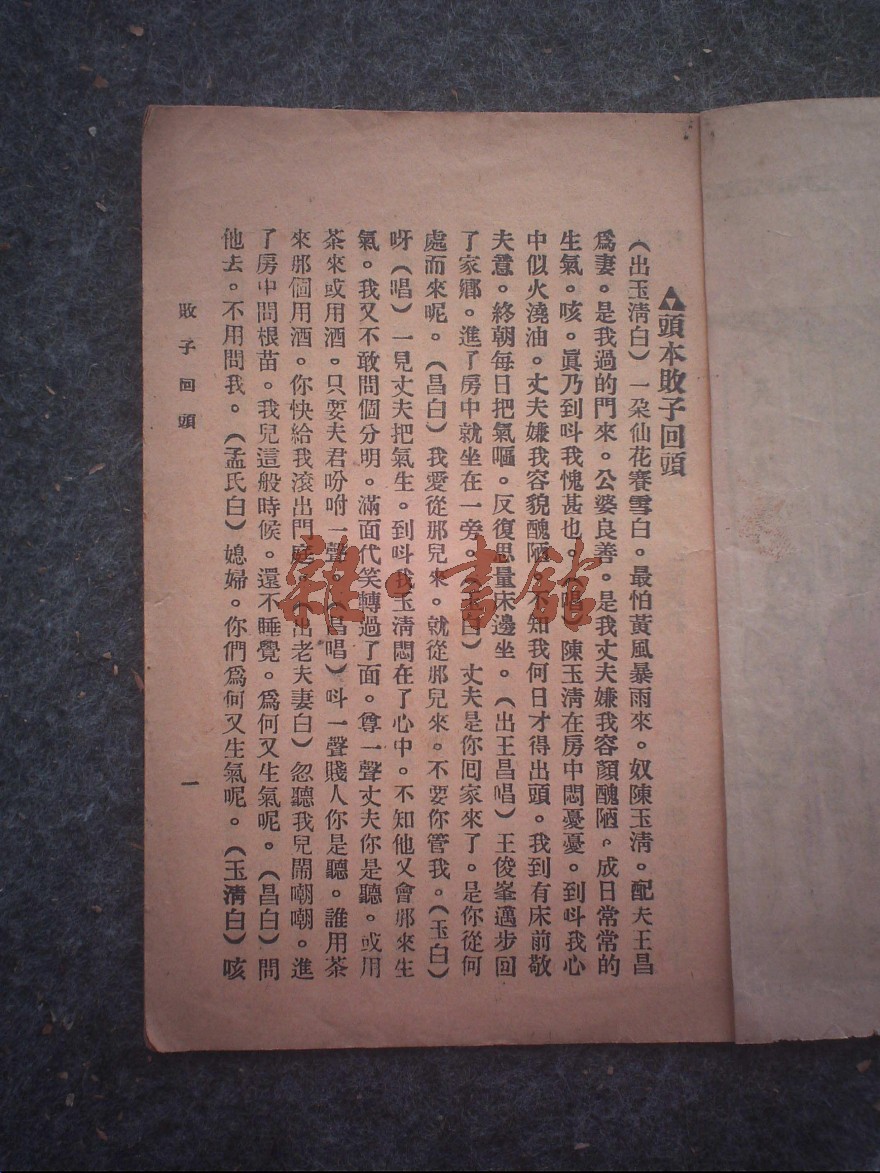 頭本敗子回頭
（出玉清白）一朶仙花賽雪白。最怕黃風暴雨來。奴陳玉清。配夫王昌
爲妻。是我過的門來。公婆良善。是我丈夫嫌我容顏醜陋。成日常常的
生氣。咳。眞乃到呌我愧甚也。（唱）陳玉清在房中悶憂憂。到呌我心
中似火澆油。丈夫嫌我容貌醜陋。不知我何日才得出頭。我到有床前敬
夫意。終朝每日把氣嘔。反復思量床邊坐。（出王昌唱）王俊峯邁步回
了家鄉。進了房中就坐在一旁。（玉白）丈夫是你囘家來了。是你從何
處而來呢。（昌白）我愛從那兒來。就從那兒來。不要你管我。（玉白）
呀（唱）一見丈夫把氣生。到呌我玉清悶在了心中。不知他又會那來生
氣。我又不敢問個分明。滿面代笑轉過了面。尊一聲丈夫你是聽。或用
茶來或用酒。只要夫君吩咐一聲。（昌唱）呌一聲賤人你是聽。誰用茶
來那個用酒。你快給我滾出門庭。（出老夫妻白）忽聽我兒鬧嘲嘲。進
了房中問根苗。我兒這般時候。還不睡覺。爲何又生氣呢。（昌白）問
他去。不用問我。（孟氏白）媳婦。你們爲何又生氣呢。（玉清白）咳
敗子回頭
一
雜·書館